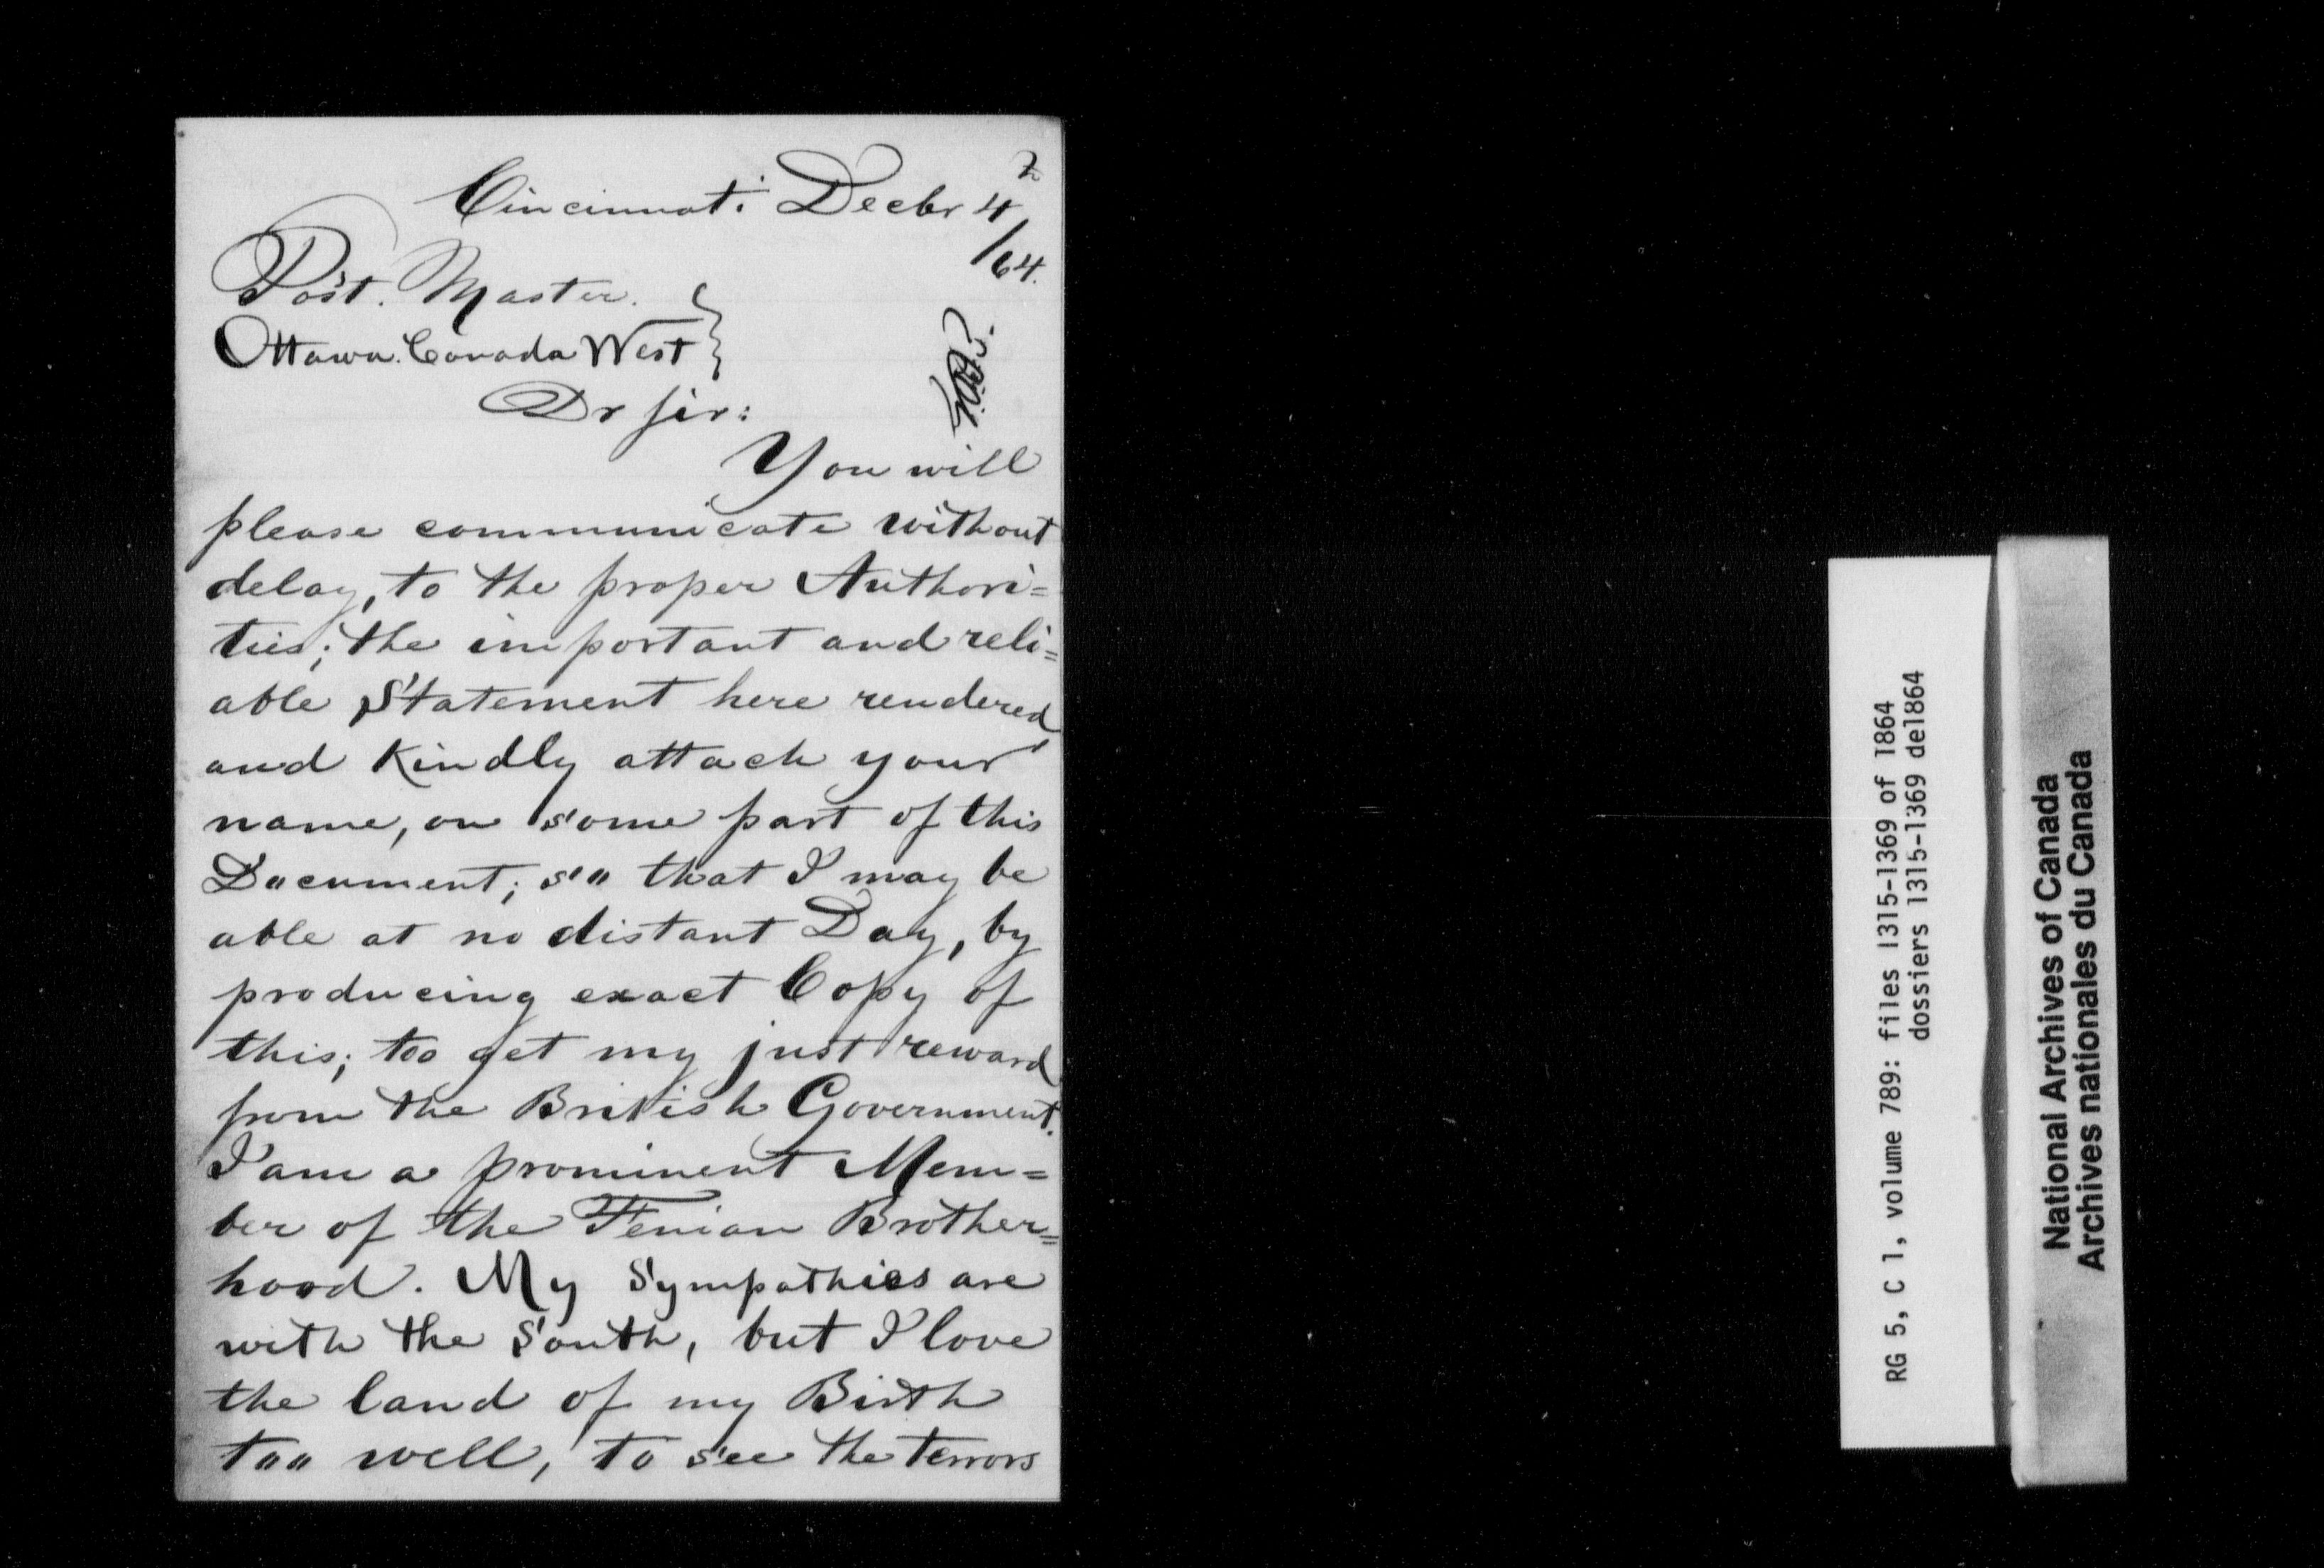 2
Cincinnati Decbr 4
/64.
Post. Master.
Ottawa. Canada West
Dr sir:
You will
please communicate without
delay, to the proper Authori=
ties; the important and reli=
able Statement here rendered
and Kindly attach your
name, on some part of this
Document; so that I may be
able at no distant Day, by
producing exact Copy of
this; too get my just reward
from the British Government.
I am a prominent Mem=
ber of the Fenian Brother=
hood. My Sympathies are
with the South, but I love
the land of my Birth
too well, to see the terrors
RG 5, C 1, volume 789: files 1315-1369 of 1864
dossiers 1315-1369 de1864
National Archives of Canada
Archives nationales du Canada